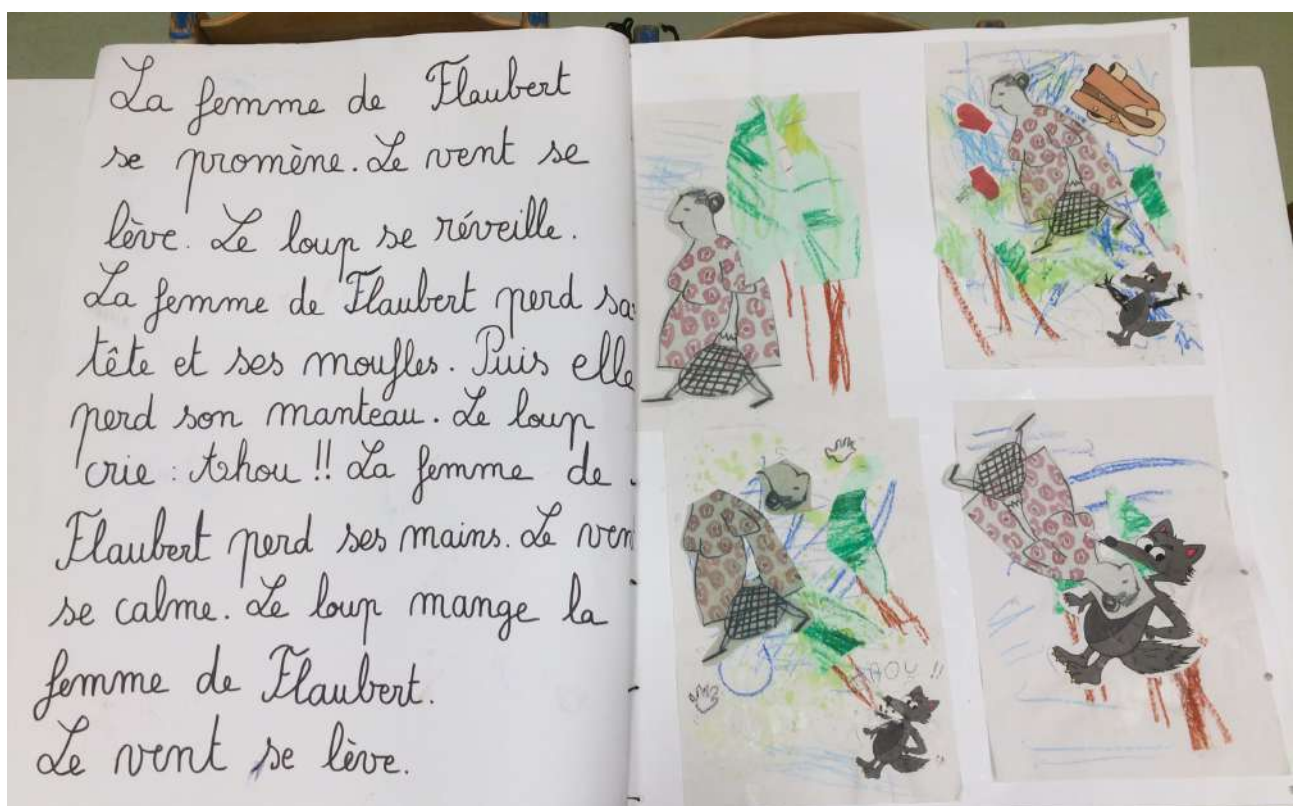 La femme de Flaubert
se promène. Le vent se
lève. Le loup se réveille.
La femme de Flaubert perd sa
tête et ses moufles. Puis elle
perd son manteau. Le loup
crie : Ahou !! La femme de
Flaubert perd ses mains. Le ven
se calme. Le loup mange la
femme de Flaubert.
Le vent se lève.
AHOU !!